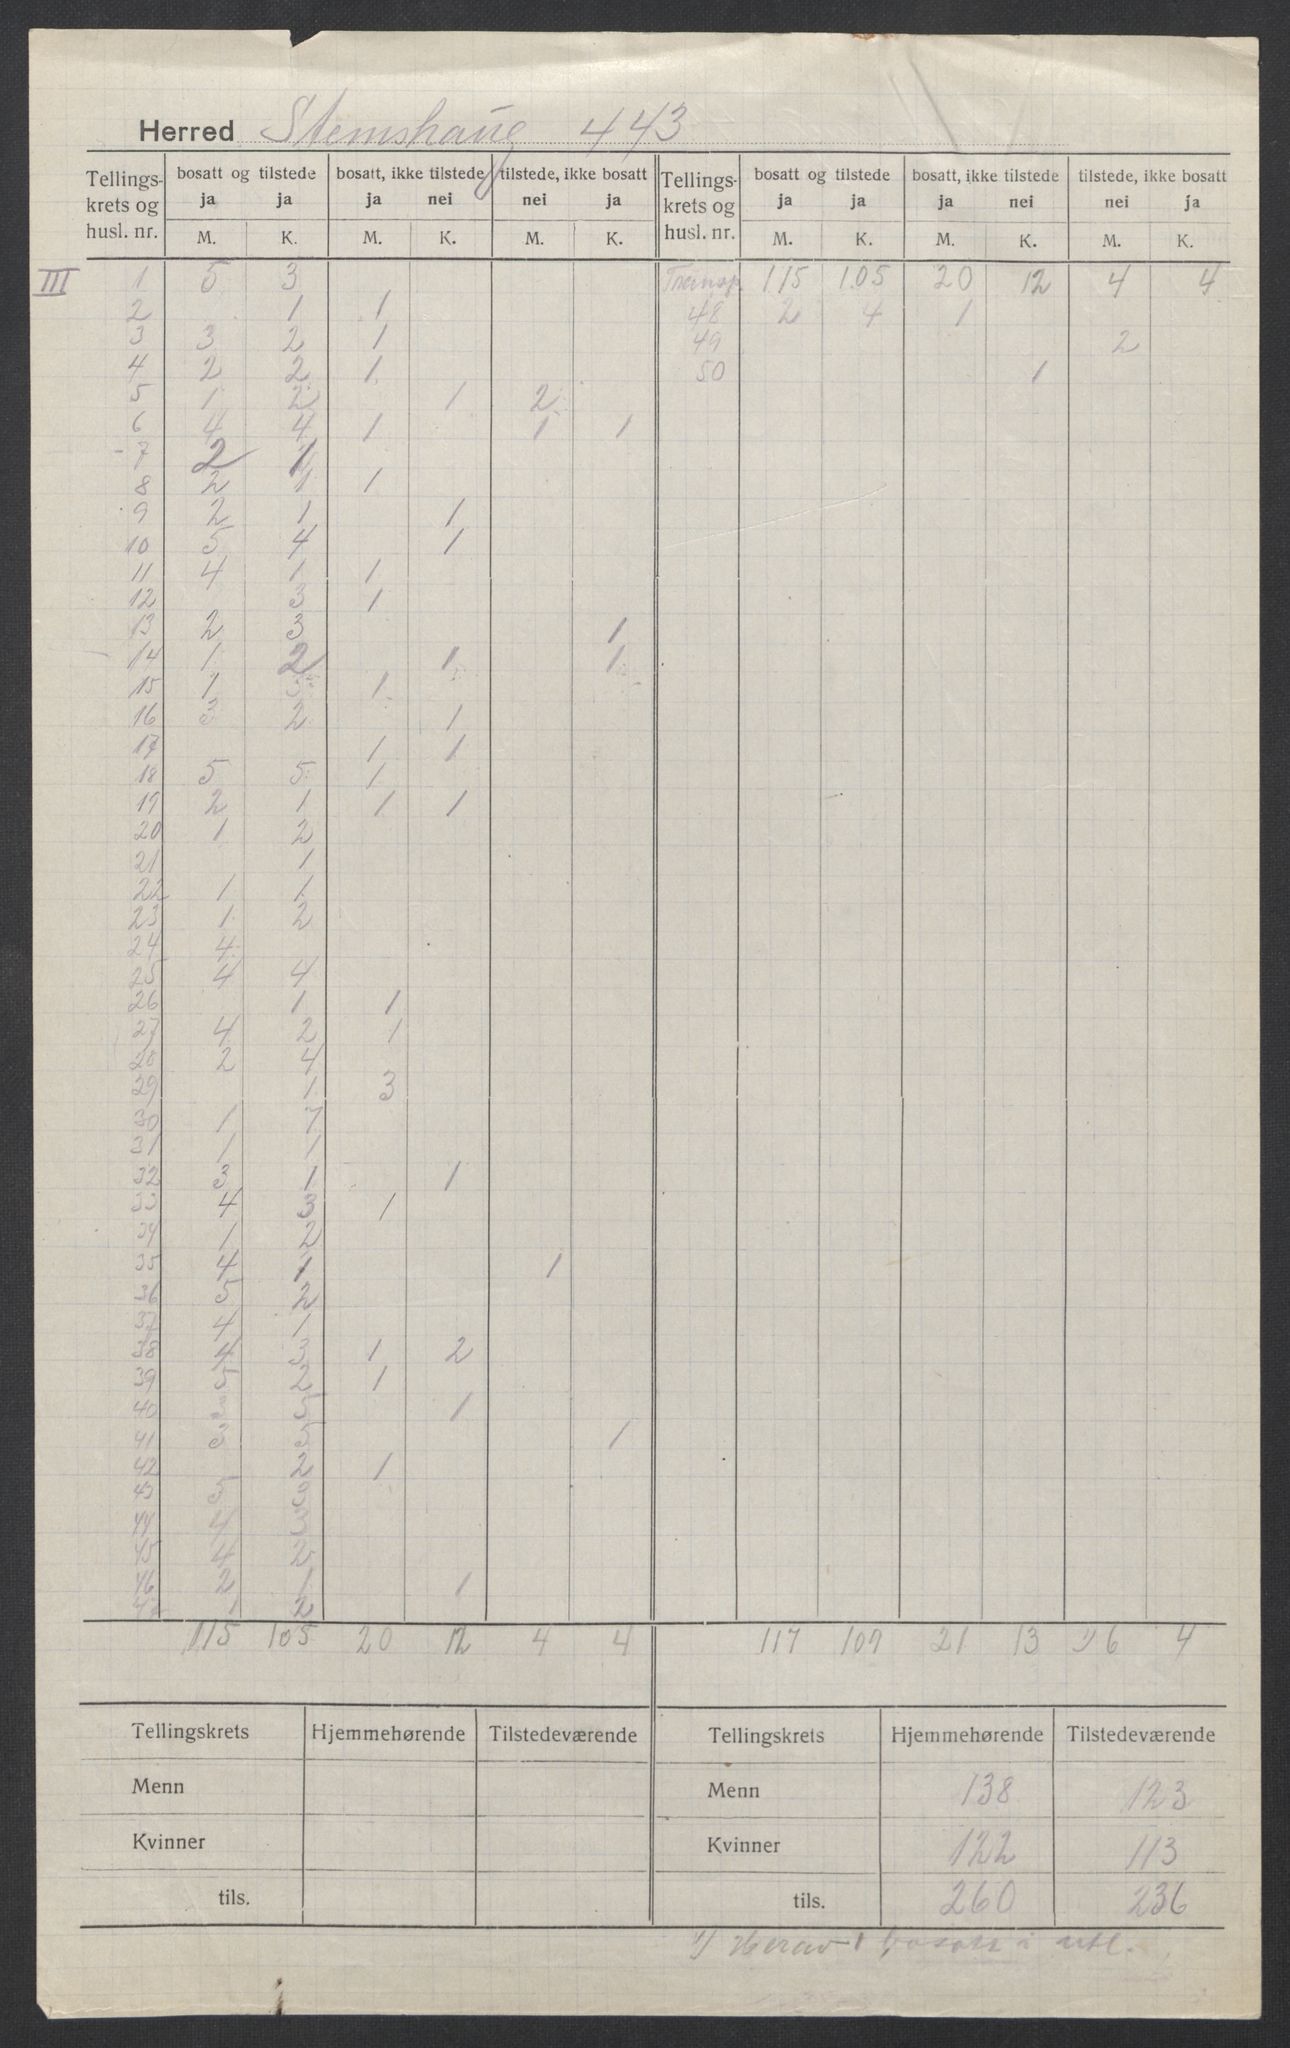 Herred Stemshaug 443
Tellings- krets og husl. nr. | bosatt og tilstede ja ja M. K. | bosatt, ikke tilstede ja nei M. K. | tilstede, ikke bosatt nei ja M. K. | Tellings- krets og husl. nr. | bosatt og tilstede ja ja M. K. | bosatt, ikke tilstede ja nei M. K. | tilstede, ikke bosatt nei ja M. K.
III 1 5 3 | Transp. 115 105 20 12 4 4
2 1 1 | 48 2 4 1
3 3 2 1 | 49 2
4 2 2 1 | 50 1
5 1 2 1 2
6 4 4 1 1 1
7 2 1
8 2 1 1
9 2 1 1
10 5 4 1
11 4 1 1
12 3 1
13 2 3 1
14 1 2 1 1
15 1 3 1
16 3 2 1
17 1 1
18 5 5 1
19 2 1 1 1
20 1 2
21 1
22 1 1
23 1 2
24 4
25 4 4
26 1 1
27 4 2 1
28 2 4
29 1 3
30 1 7
31 1 1
32 3 1 1
33 4 3 1
34 1 2
35 4 1 1
36 5 2
37 4 1
38 4 3 1 2
39 5 2 1
40 1
41 3 1
42 2 1
43
44 4 3
45 4 2
46 2 1 1
47 2
115 105 20 12 4 4 | 117 109 21 13 1) 6 4
Tellingskrets Hjemmehørende Tilstedeværende | Tellingskrets Hjemmehørende Tilstedeværende
Menn | Menn 138 123
Kvinner | Kvinner 122 113
tils. | tils. 260 236
1/ Herav 1 bosatt i utl.